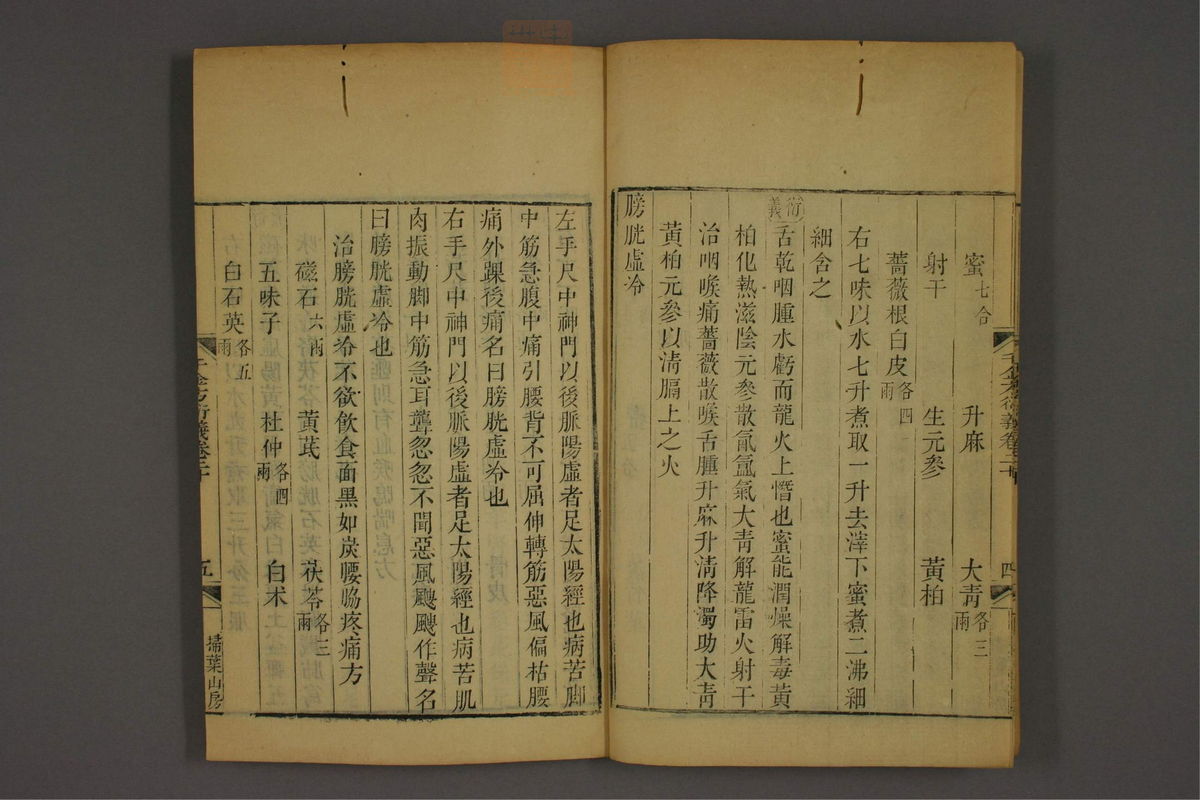 蜜七合　升麻　大靑各三兩
射干　生元參　黃柏
薔薇根白皮各四兩
右七味以水七升煮取一升去滓下蜜煮二沸細
細含之
衍義
舌乾咽腫水虧而龍火上憯也蜜能潤燥解毒黃
柏化熱滋陰元參散氤氳氣大靑解龍雷火射干
治咽喉痛薔薇散喉舌腫升麻升淸降濁助大靑
黃柏元參以淸膈上之火
膀胱虛冷
千金方衍義卷二十
四
左手尺中神門以後脈陽虛者足太陽經也病苦脚
中筋急腹中痛引腰背不可屈伸轉筋惡風偏枯腰
痛外踝後痛名曰膀胱虛冷也
右手尺中神門以後脈陽虛者足太陽經也病苦肌
肉振動脚中筋急耳聾忽忽不聞惡風颼颼作聲名
曰膀胱虛冷也
治膀胱虛冷不欲飮食面黑如炭腰脇疼痛方
磁石六兩　黃芪　茯苓各三兩
五味子　杜仲各四兩　白术
白石英各五兩
千金方衍義卷二十
五
掃葉山房